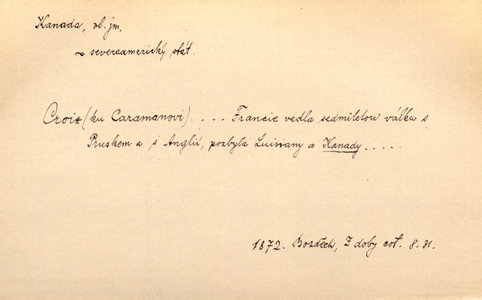 Kanada, vl. jm.
~ severoamerický stát.
Croix (ku Caramanovi) .... Francie vedla sedmiletou válku s
Pruskem a s Anglií, pozbyla Luisiany a Kanady .....
1872. Bozděch, Z doby cot. 8. 81.